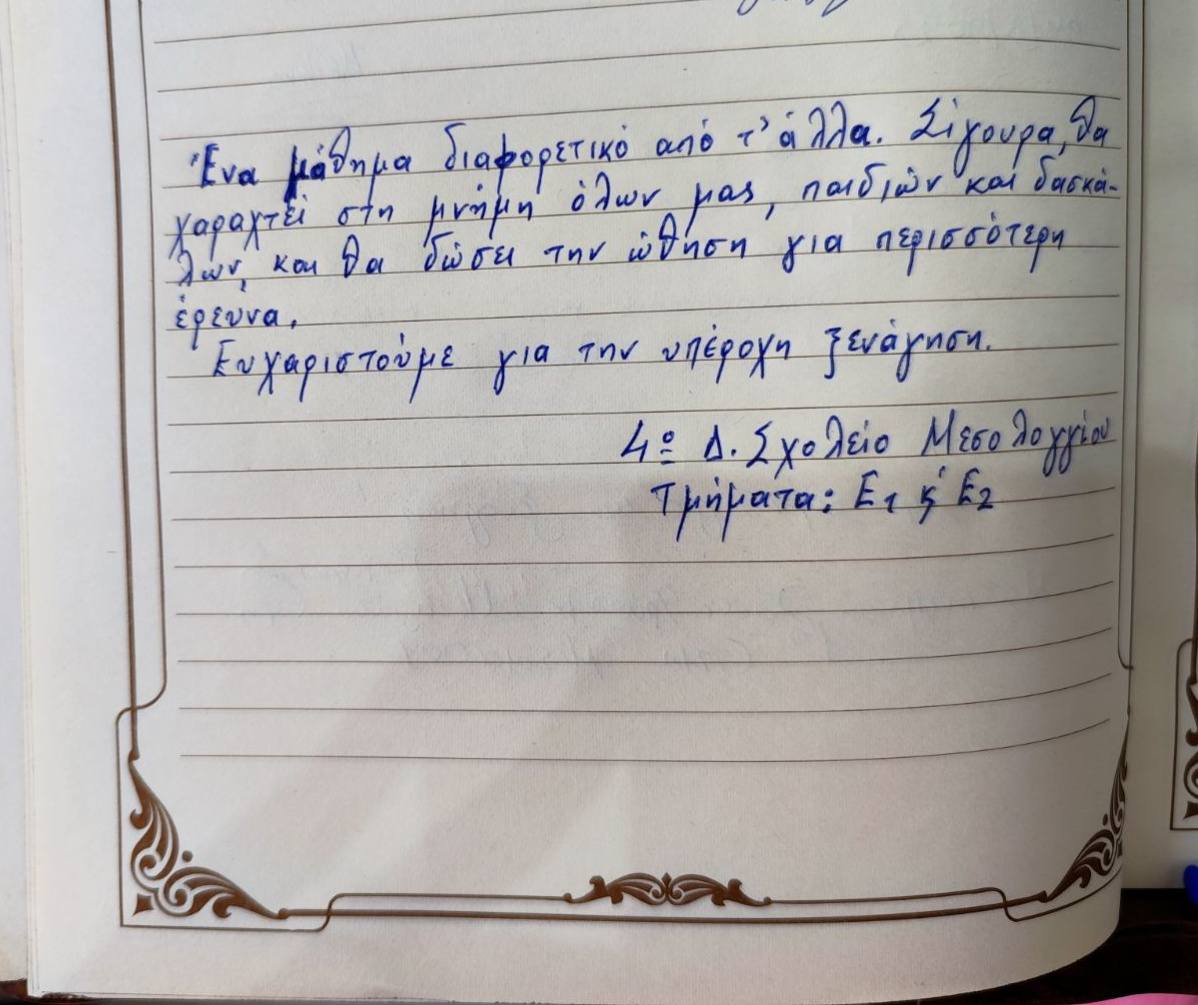 Ένα μάθημα διαφορετικό από τ' άλλα. Σίγουρα, θα
χαραχτεί στη μνήμη όλων μας, παιδιών και δασκά-
λων, και θα δώσει την ώθηση για περισσότερη
έρευνα.
Ευχαριστούμε για την υπέροχη ξενάγηση.
4ο Δ. Σχολείο Μεσολογγίου
Τμήματα: Ε1 κ' Ε2